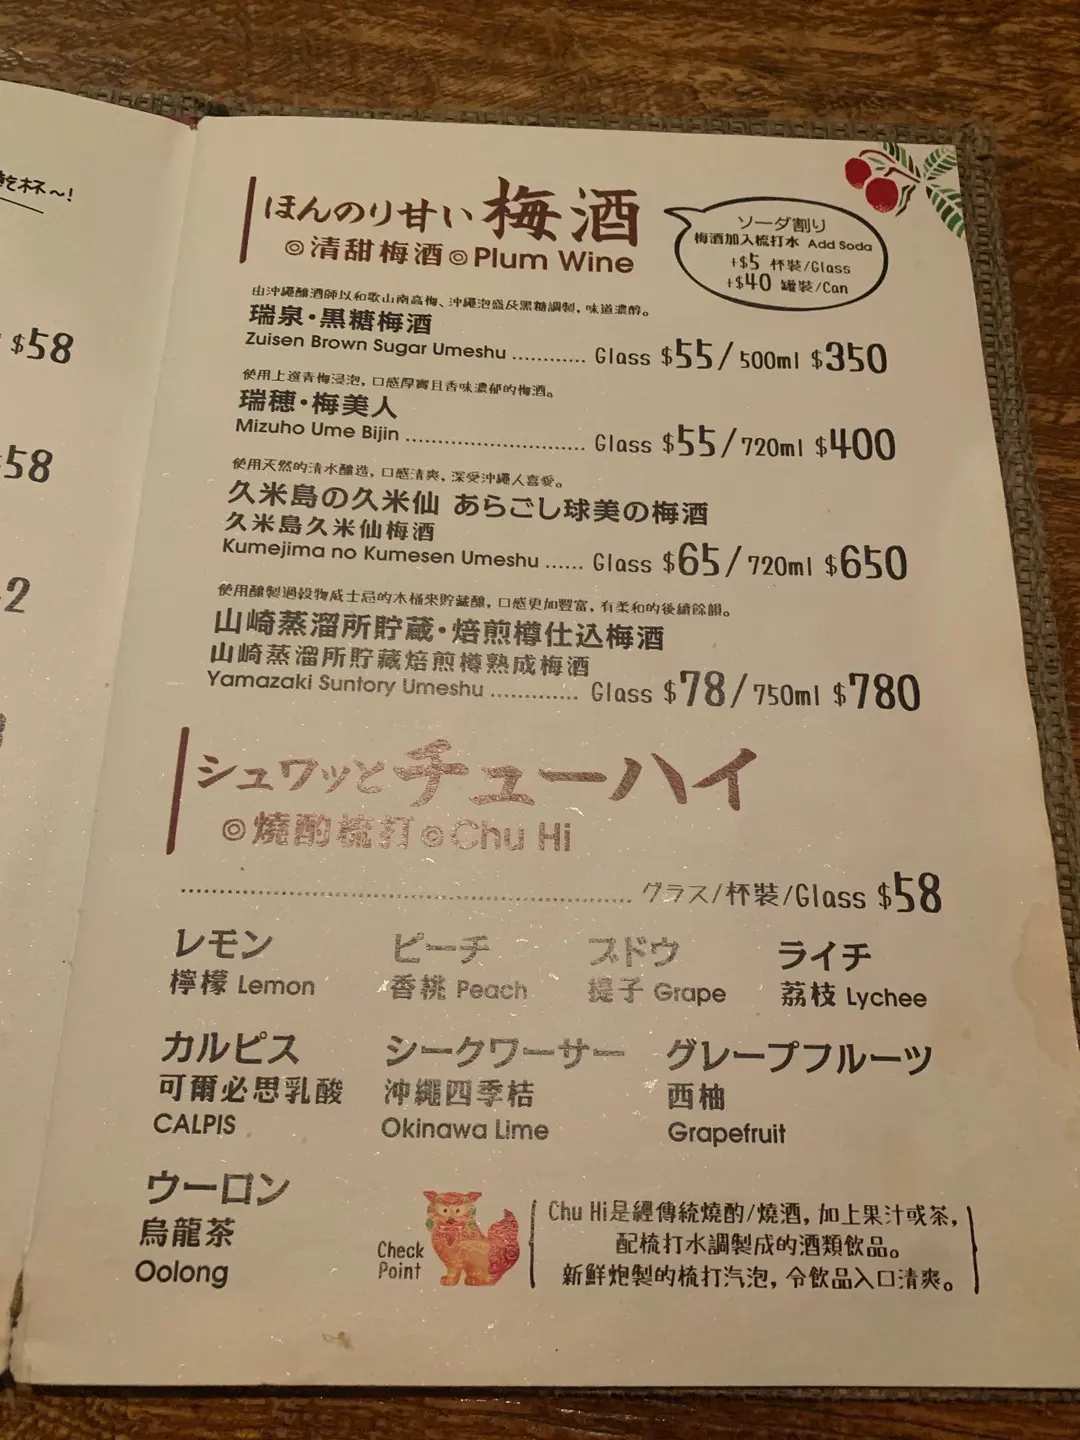 乾杯~!
$58
58
2
ほんのり甘い 梅酒
◎清甜梅酒◎Plum Wine
ソーダ割り
梅酒加入梳打水 Add Soda
+$5 杯裝/Glass
+$40 罐裝/Can
由沖繩釀酒師以和歌山南高梅、沖繩泡盛及黑糖調製，味道濃醇。
瑞泉・黒糖梅酒
Zuisen Brown Sugar Umeshu ............ Glass $55/500ml $350
使用上選青梅浸泡，口感厚實且香味濃郁的梅酒。
瑞穂・梅美人
Mizuho Ume Bijin ............................. Glass $55/720ml $400
使用天然的清水釀造，口感清爽，深受沖繩人喜愛。
久米島の久米仙 あらごし球美の梅酒
久米島久米仙梅酒
Kumejima no Kumesen Umeshu ...... Glass $65/720ml $650
使用釀製過穀物威士忌的木桶來貯藏釀，口感更加豐富，有柔和的後續餘韻。
山崎蒸溜所貯蔵・焙煎樽仕込梅酒
山崎蒸溜所貯藏焙煎樽熟成梅酒
Yamazaki Suntory Umeshu .............. Glass $78/750ml $780
シュワッとチューハイ
◎燒酌梳打◎Chu Hi
グラス/杯裝/Glass $58
レモン
檸檬 Lemon
ピーチ
香桃 Peach
ブドウ
提子 Grape
ライチ
荔枝 Lychee
カルピス
可爾必思乳酸
CALPIS
シークワーサー
沖繩四季桔
Okinawa Lime
グレープフルーツ
西柚
Grapefruit
ウーロン
烏龍茶
Oolong
Check
Point
Chu Hi是經傳統燒酌/燒酒，加上果汁或茶，
配梳打水調製成的酒類飲品。
新鮮炮製的梳打汽泡，令飲品入口清爽。